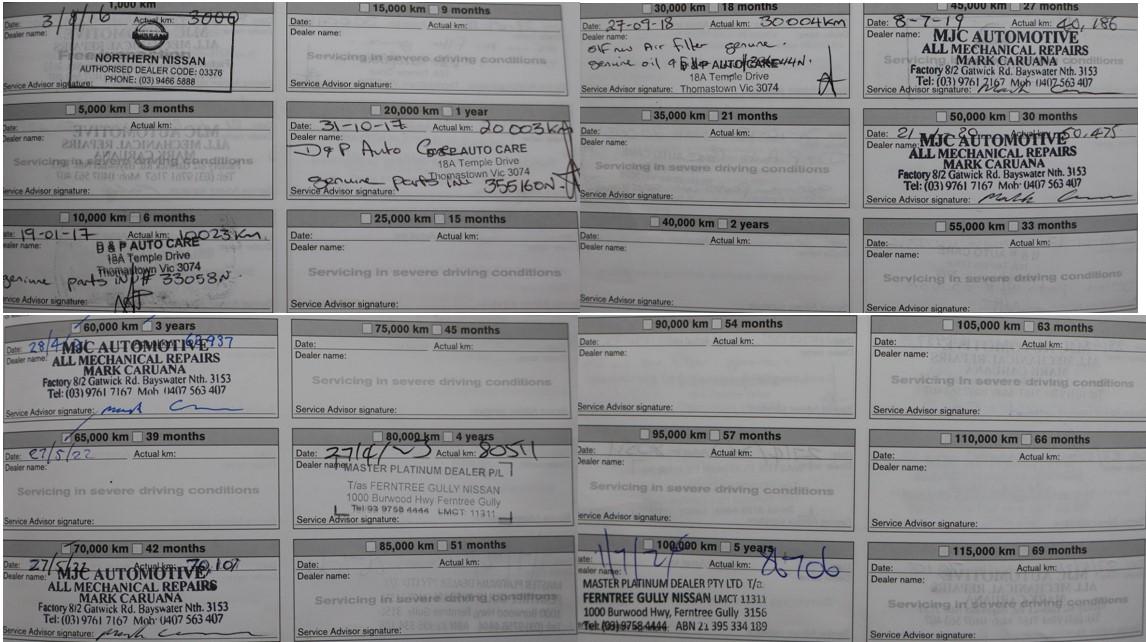 1,000 km
Date: 3/8/16 Actual km: 3000
Dealer name:
NISSAN
NORTHERN NISSAN
AUTHORISED DEALER CODE: 03376
PHONE: (03) 9466 5888
Service Advisor signature:
5,000 km 3 months
Date: Actual km:
Dealer name:
Servicing in severe driving conditions
Service Advisor signature:
10,000 km 6 months
Date: 19-01-17 Actual km: 10023 km.
Dealer name:
D & P AUTO CARE
18A Temple Drive
Thomastown Vic 3074
genuine parts in # 33058N.
Service Advisor signature:
15,000 km 9 months
Date: Actual km:
Dealer name:
Servicing in severe driving conditions
Service Advisor signature:
20,000 km 1 year
Date: 31-10-17 Actual km: 20003KM
Dealer name:
D & P Auto Care
D & P AUTO CARE
18A Temple Drive
Thomastown Vic 3074
genuine parts inv 355160N.
Service Advisor signature:
25,000 km 15 months
Date: Actual km:
Dealer name:
Servicing in severe driving conditions
Service Advisor signature:
30,000 km 18 months
Date: 27-09-18 Actual km: 30004km
Dealer name:
Air filter genuine.
genuine oil
D & P AUTO CARE
18A Temple Drive
Service Advisor signature: Thomastown Vic 3074
35,000 km 21 months
Date: Actual km:
Dealer name:
Servicing in severe driving conditions
Service Advisor signature:
40,000 km 2 years
Date: Actual km:
Dealer name:
Service Advisor signature:
45,000 km 27 months
Date: 8-7-19 Actual km: 40,186
Dealer name:
MJC AUTOMOTIVE
ALL MECHANICAL REPAIRS
MARK CARUANA
Factory 8/2 Gatwick Rd. Bayswater Nth. 3153
Tel: (03) 9761 7167 Mob 0407 563 407
Service Advisor signature:
50,000 km 30 months
Date: 21 20 Actual km: 50,475
Dealer name:
MJC AUTOMOTIVE
ALL MECHANICAL REPAIRS
MARK CARUANA
Factory 8/2 Gatwick Rd. Bayswater Nth. 3153
Tel: (03) 9761 7167 Mob 0407 563 407
Service Advisor signature:
55,000 km 33 months
Date: Actual km:
Dealer name:
Servicing in severe driving conditions
Service Advisor signature:
60,000 km 3 years
Date: 28/4 Actual km:
Dealer name:
MJC AUTOMOTIVE
ALL MECHANICAL REPAIRS
MARK CARUANA
Factory 8/2 Gatwick Rd. Bayswater Nth. 3153
Tel: (03) 9761 7167 Mob 0407 563 407
Service Advisor signature:
65,000 km 39 months
Date: 27/5/22 Actual km:
Dealer name:
Servicing in severe driving conditions
Service Advisor signature:
70,000 km 42 months
Date: 27/5/22 Actual km: 70,107
Dealer name:
MJC AUTOMOTIVE
ALL MECHANICAL REPAIRS
MARK CARUANA
Factory 8/2 Gatwick Rd. Bayswater Nth. 3153
Tel: (03) 9761 7167 Mob 0407 563 407
Service Advisor signature:
75,000 km 45 months
Date: Actual km:
Dealer name:
Servicing in severe driving conditions
Service Advisor signature:
80,000 km 4 years
Date: 27/4/23 Actual km: 80511
Dealer name:
MASTER PLATINUM DEALER P/L
T/as FERNTREE GULLY NISSAN
1000 Burwood Hwy Ferntree Gully
Tel: 03 9758 4444 LMCT: 11311
Service Advisor signature:
85,000 km 51 months
Date: Actual km:
Dealer name:
Servicing in severe driving conditions
Service Advisor signature:
90,000 km 54 months
Date: Actual km:
Dealer name:
Service Advisor signature:
95,000 km 57 months
Date: Actual km:
Dealer name:
Servicing in severe driving conditions
Service Advisor signature:
100,000 km 5 years
Date: Actual km:
Dealer name:
MASTER PLATINUM DEALER PTY LTD T/a
FERNTREE GULLY NISSAN LMCT 11311
1000 Burwood Hwy, Ferntree Gully 3156
Tel: (03) 9758 4444 ABN 21 395 334 189
105,000 km 63 months
Date: Actual km:
Dealer name:
Servicing in severe driving conditions
Service Advisor signature:
110,000 km 66 months
Date: Actual km:
Dealer name:
Service Advisor signature:
115,000 km 69 months
Date: Actual km:
Dealer name:
Servicing in severe driving conditions
Service Advisor signature: